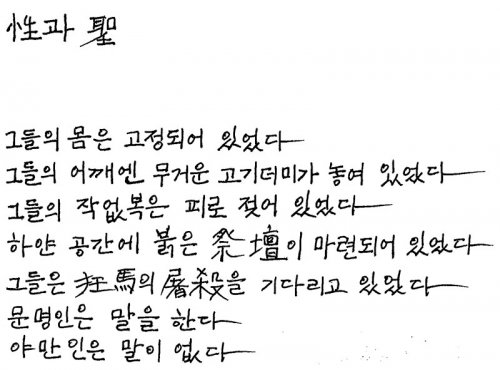 性과 聖
그들의 몸은 고정되어 있었다―
그들의 어깨엔 무거운 고기더미가 놓여 있었다―
그들의 작업복은 피로 젖어 있었다―
하얀 공간에 붉은 祭壇이 마련되어 있었다―
그들은 狂馬의 屠殺을 기다리고 있었다―
문명인은 말을 한다―
야만인은 말이 없다―